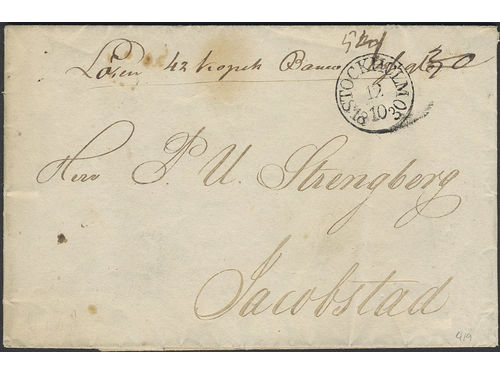 Lösen 42 kopek Banco
30
STOCKHOLM
12
10
1830
Herr P. U. Strengberg
Jacobstad
419